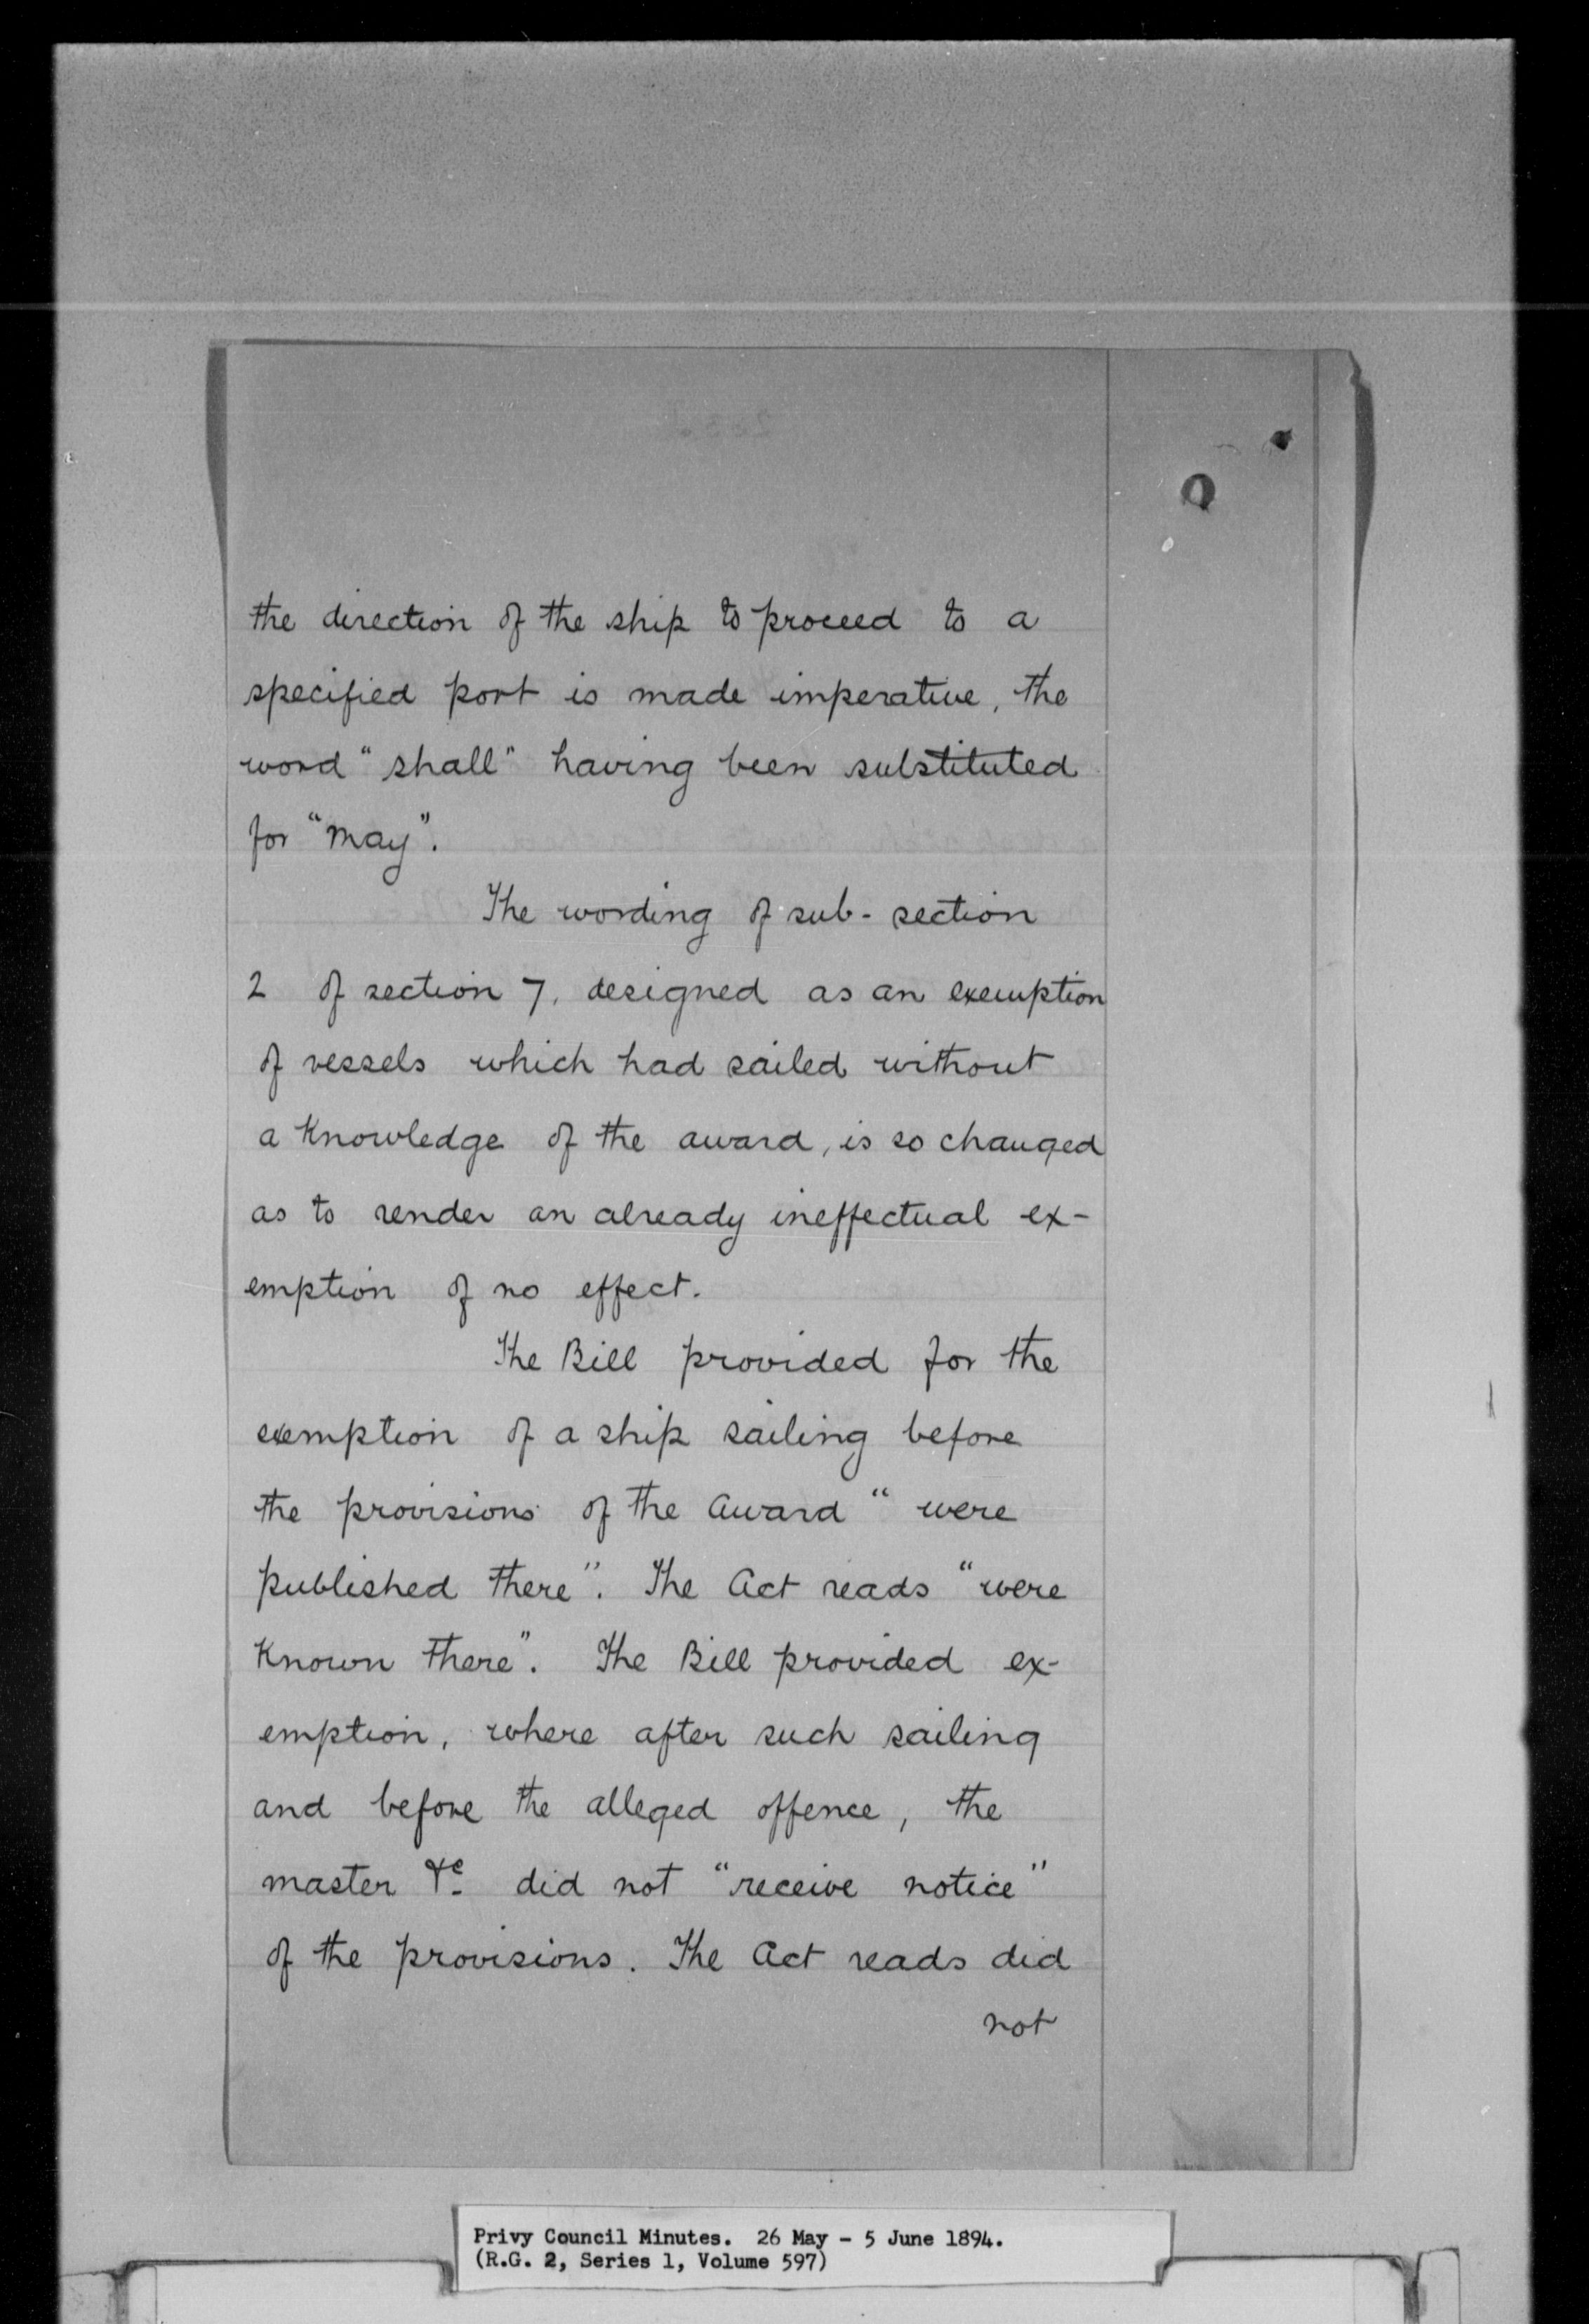 the direction of the ship to proceed to a
specified port is made imperative, the
word "shall" having been substituted
for "may".
The wording of sub-section
2 of section 7, designed as an exemption
of vessels which had sailed without
a knowledge of the award, is so changed
as to render an already ineffectual ex-
emption of no effect.
The Bill provided for the
exemption of a ship sailing before
the provisions of the award "were
published there". The Act reads "were
known there". The Bill provided ex-
emption, where after such sailing
and before the alleged offence, the
master &c. did not "receive notice"
of the provisions. The Act reads did
not
Privy Council Minutes. 26 May - 5 June 1894.
(R.G. 2, Series 1, Volume 597)